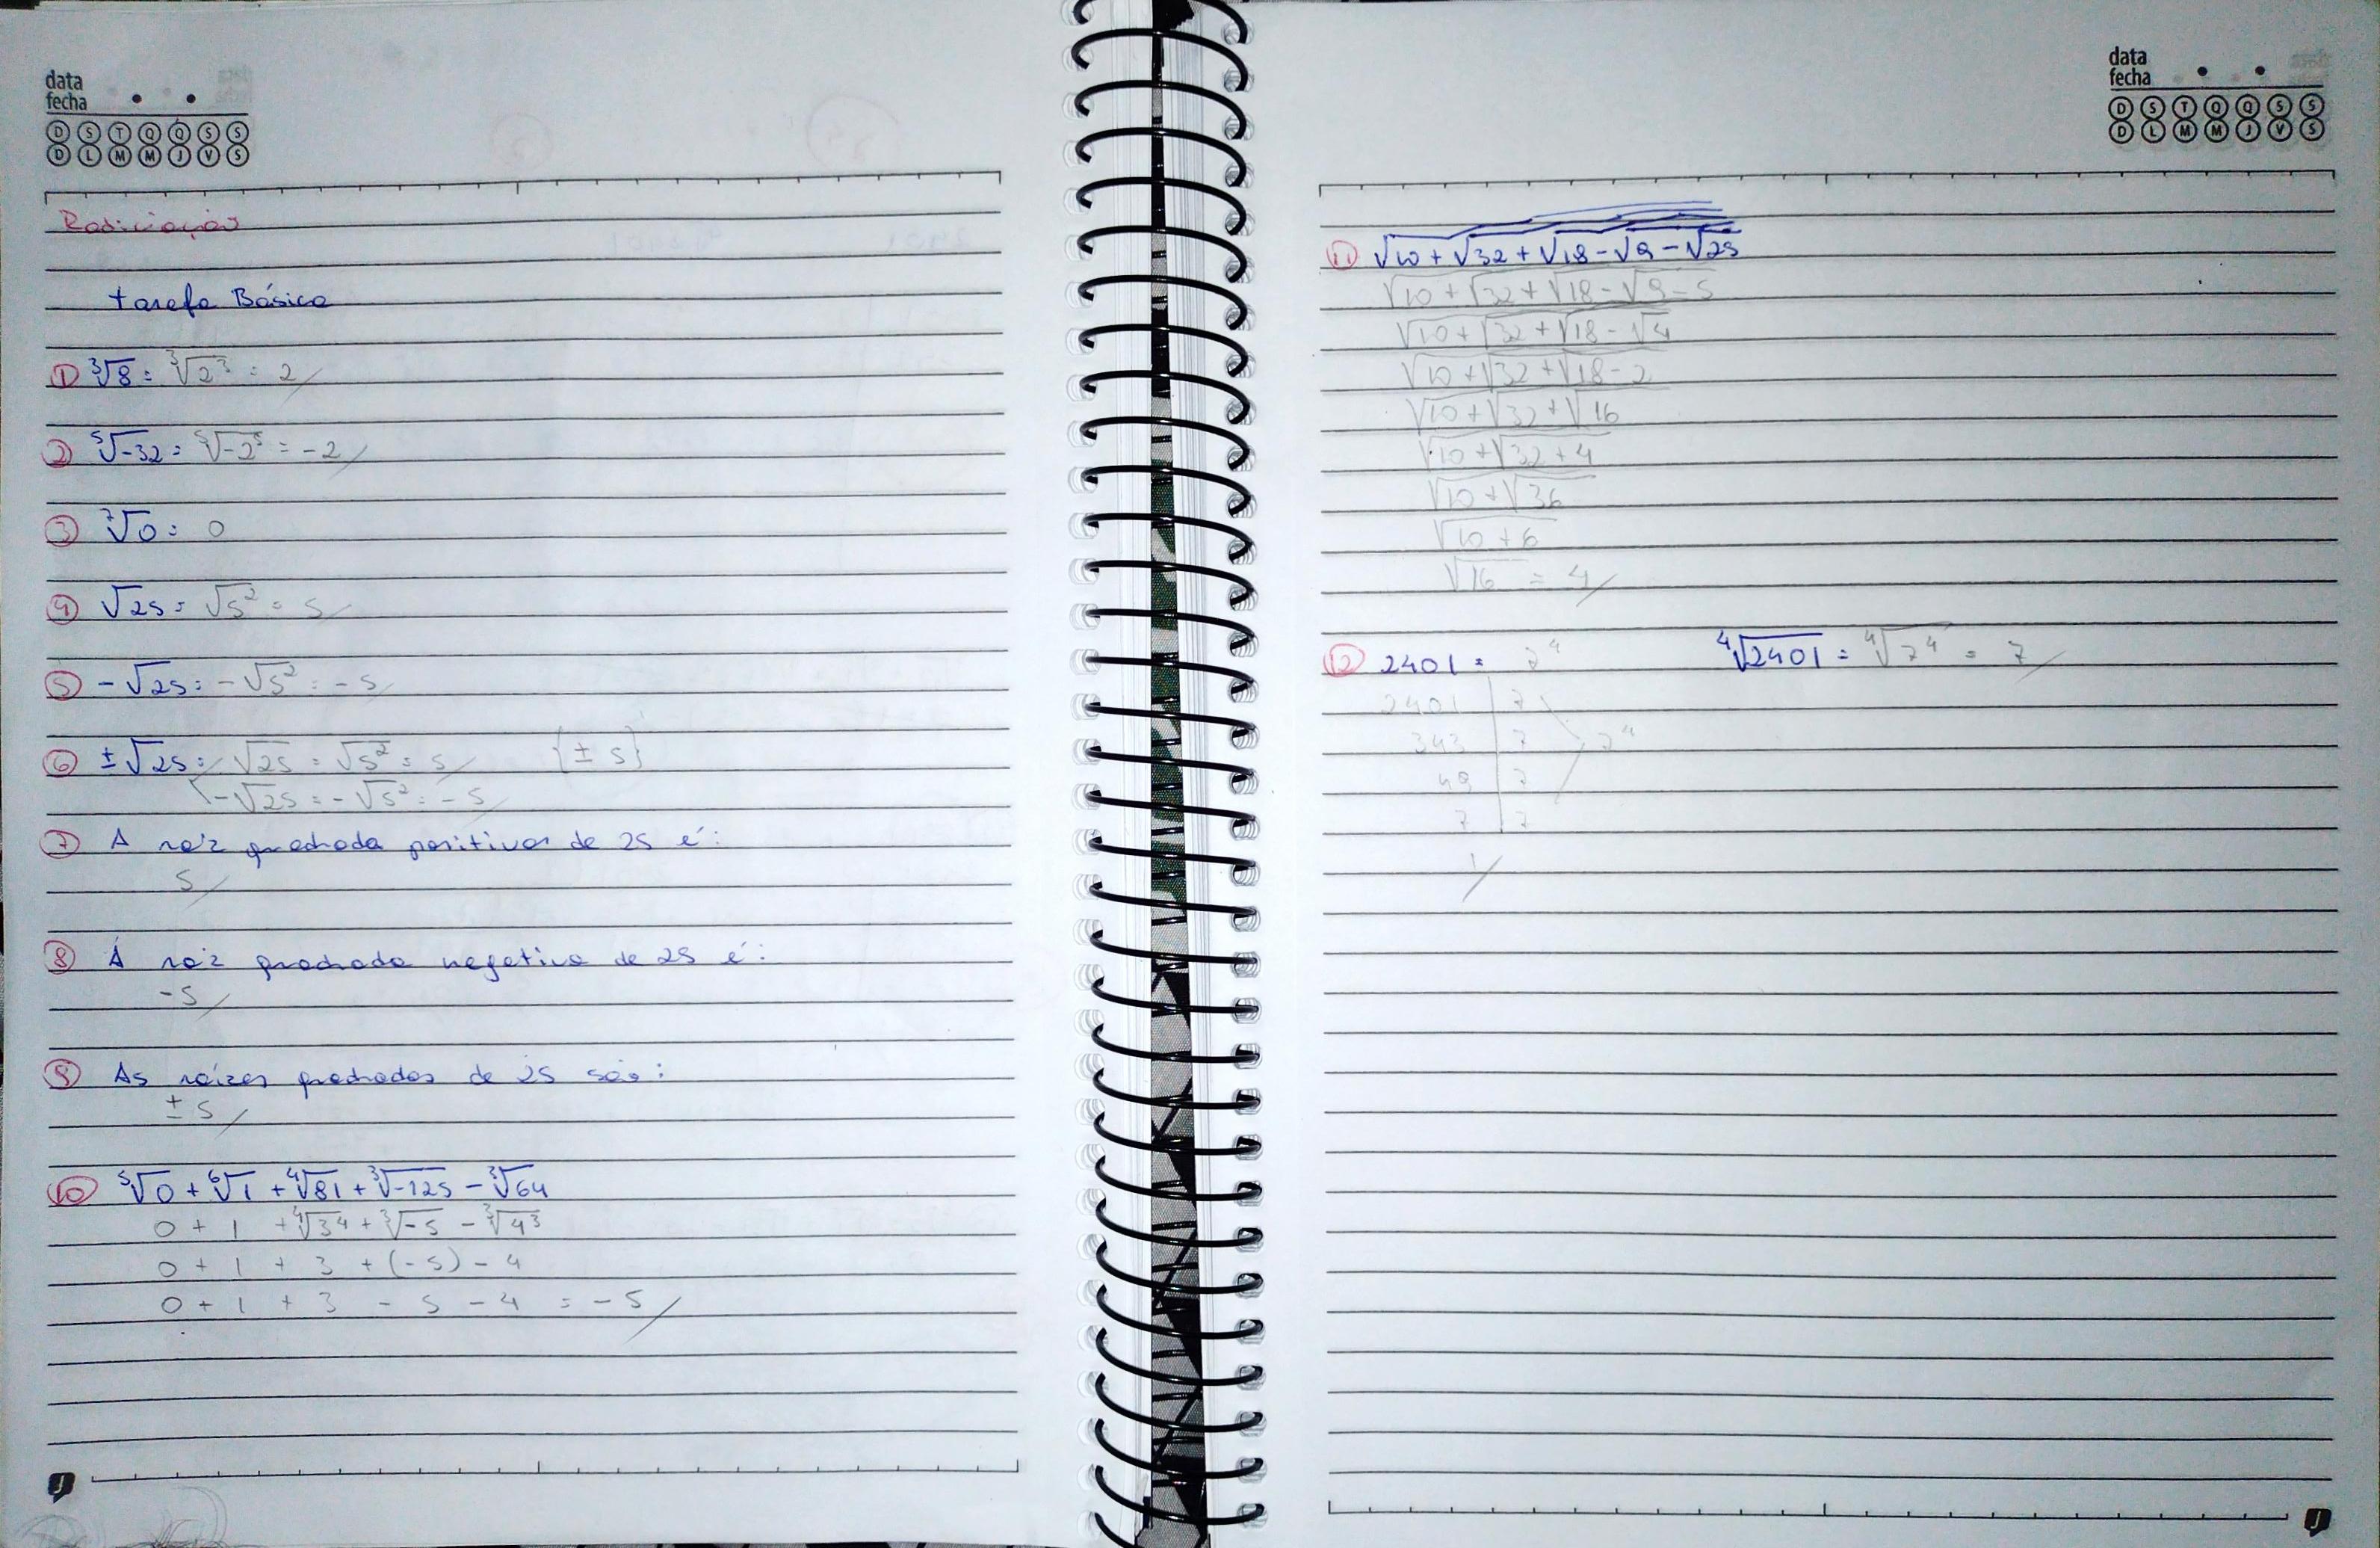 data
fecha
D S T Q Q S S
D L M M J V S
Radiciação
tarefa Básica
① ∛8 = ∛2³ = 2
② ⁵√-32 = ⁵√-2⁵ = -2
③ ⁷√0 = 0
④ √25 = √5² = 5
⑤ -√25 = -√5² = -5
⑥ ±√25 = √25 = √5² = 5 {± 5}
-√25 = -√5² = -5
⑦ A raiz quadrada positiva de 25 é:
5
⑧ A raiz quadrada negativa de 25 é:
-5
⑨ As raízes quadradas de 25 são:
± 5
⑩ ⁵√0 + ⁶√1 + ⁴√81 + ³√-125 - ³√64
0 + 1 + ⁴√3⁴ + ³√-5 - ³√4³
0 + 1 + 3 + (-5) - 4
0 + 1 + 3 - 5 - 4 = -5
data
fecha
D S T Q Q S S
D L M M J V S
⑪ √10 + √32 + √18 - √9 - √25
√10 + √32 + √18 - √9 - 5
√10 + √32 + √18 - √4
√10 + √32 + √18 - 2
√10 + √32 + √16
√10 + √32 + 4
√10 + √36
√10 + 6
√16 = 4
⑫ 2401 = 7⁴ ⁴√2401 = ⁴√7⁴ = 7
2401 | 7
343 | 7 7⁴
49 | 7
7 | 7
1